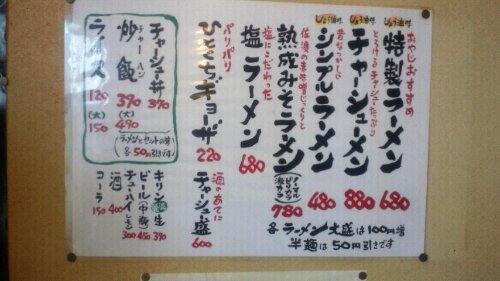 おやじおすすめ
しょう油味
特製ラーメン
680
とろけるチャーシューたっぷり
しょう油味
チャーシューメン
880
昔なつかしい
しょう油味
シンプルラーメン
480
佐渡の赤味噌じっくりと
熟成みそラーメン
ノーマル
ピリカラ
激カラ
780
塩にこだわった
塩ラーメン
680
各ラーメン大盛は100円増
半麺は50円引きです
パリパリ
ひとくちギョーザ
220
酒のあてに
チャーシュー盛
600
チャーシュー丼
390
チャーハン
炒飯
390
(大)
490
ライス
120
(大)
150
(ラーメンとセットの時
各50円引きです)
キリン 生
390
ビール(中瓶)
450
チューハイレモン
300
酒
400
コーラ
150